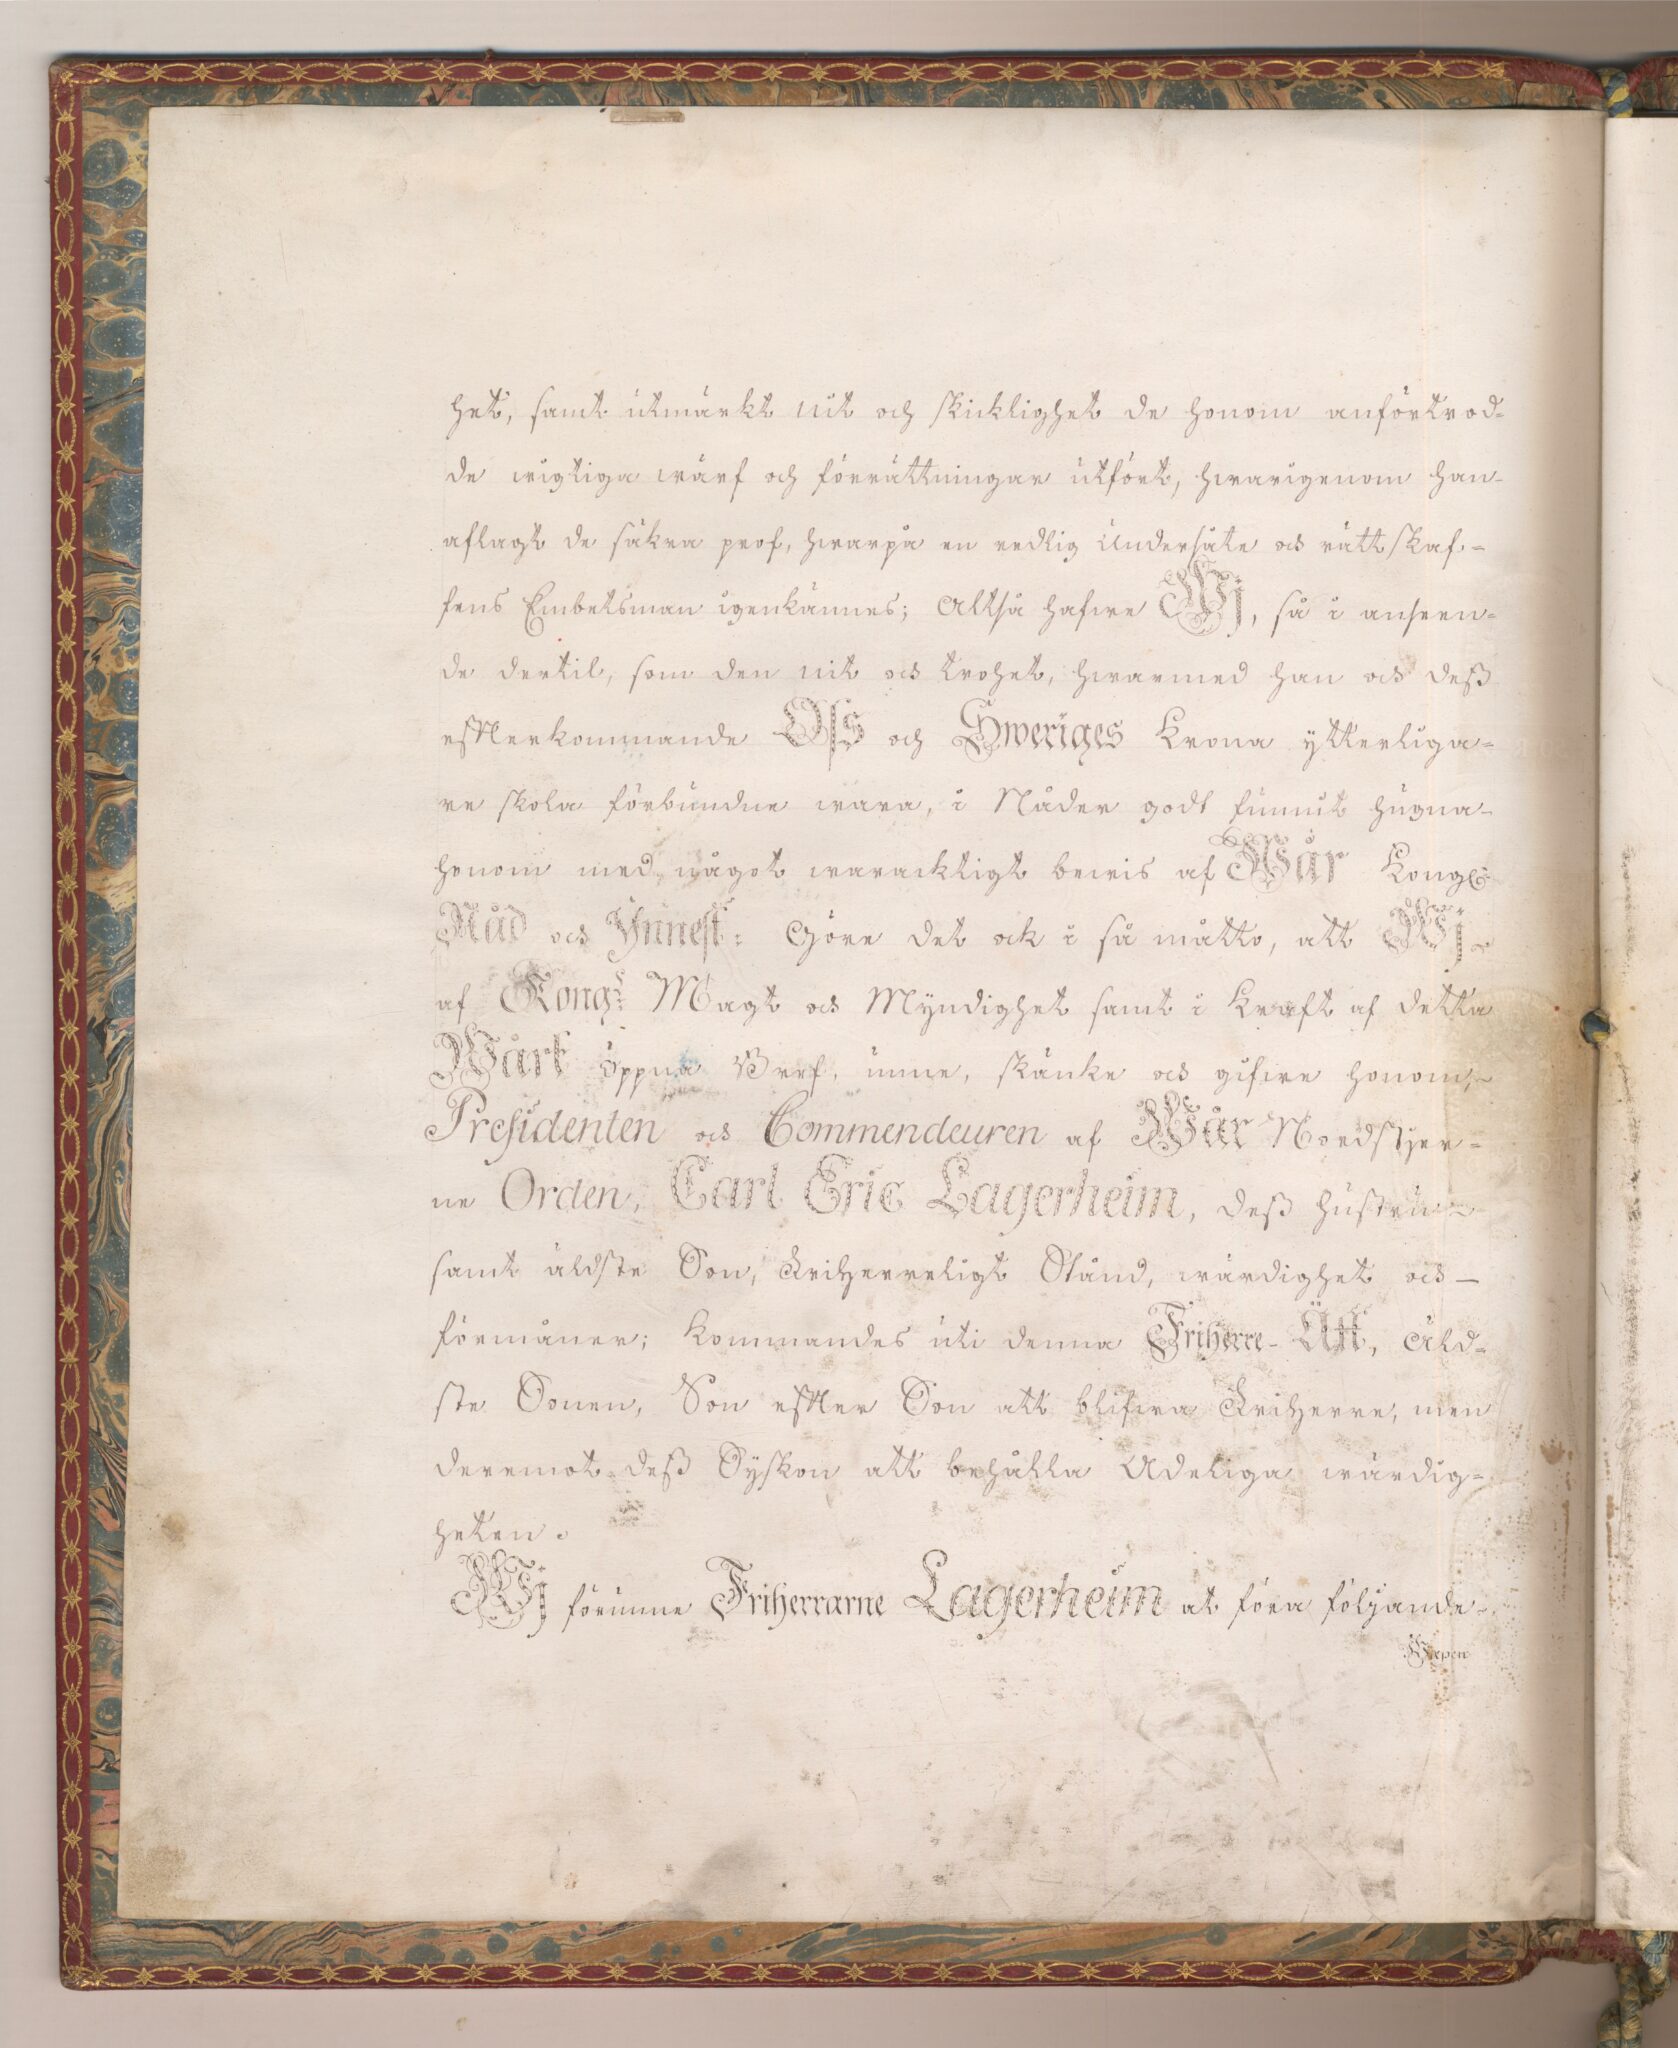 het, samt utmärkt nit och skicklighet de honom anförtrod-
de wigtiga wärf och förrättningar utfört, hwarigenom han
aflagt de säkra prof, hwarpå en redlig Undersåte och rättskaf-
fens Embetsman igenkännes; Altså hafwe Wj, så i anseen-
de dertil, som den nit och trohet, hwarmed han och deß
efterkommande Oss och Sweriges Krona ytterliga-
re skola förbundne wara, i Nåder godt funnit hugna
honom med något waracktigt bewis af Wår Kongl:
Nåd och Ynnest: Göre det ock i så måtto, att Wj
af Kongl: Magt och Myndighet samt i kraft af detta
Wårt öppna Bref, unne, skänke och gifwe honom,
Presidenten och Commendeuren af Wår Nordstjer-
ne Orden, Carl Eric Lagerheim, deß hustru
samt äldste Son, Friherreligt Stånd, wärdighet och
förmåner; kommandes uti denna Friherre-Ätt, Äld-
ste Sonen, Son efter Son att blifwa Friherre, men
deremot deß Syskon att behålla Adeliga wärdig-
heten.
Wj förunne Friherrarne Lagerheim at föra följande
Wapen